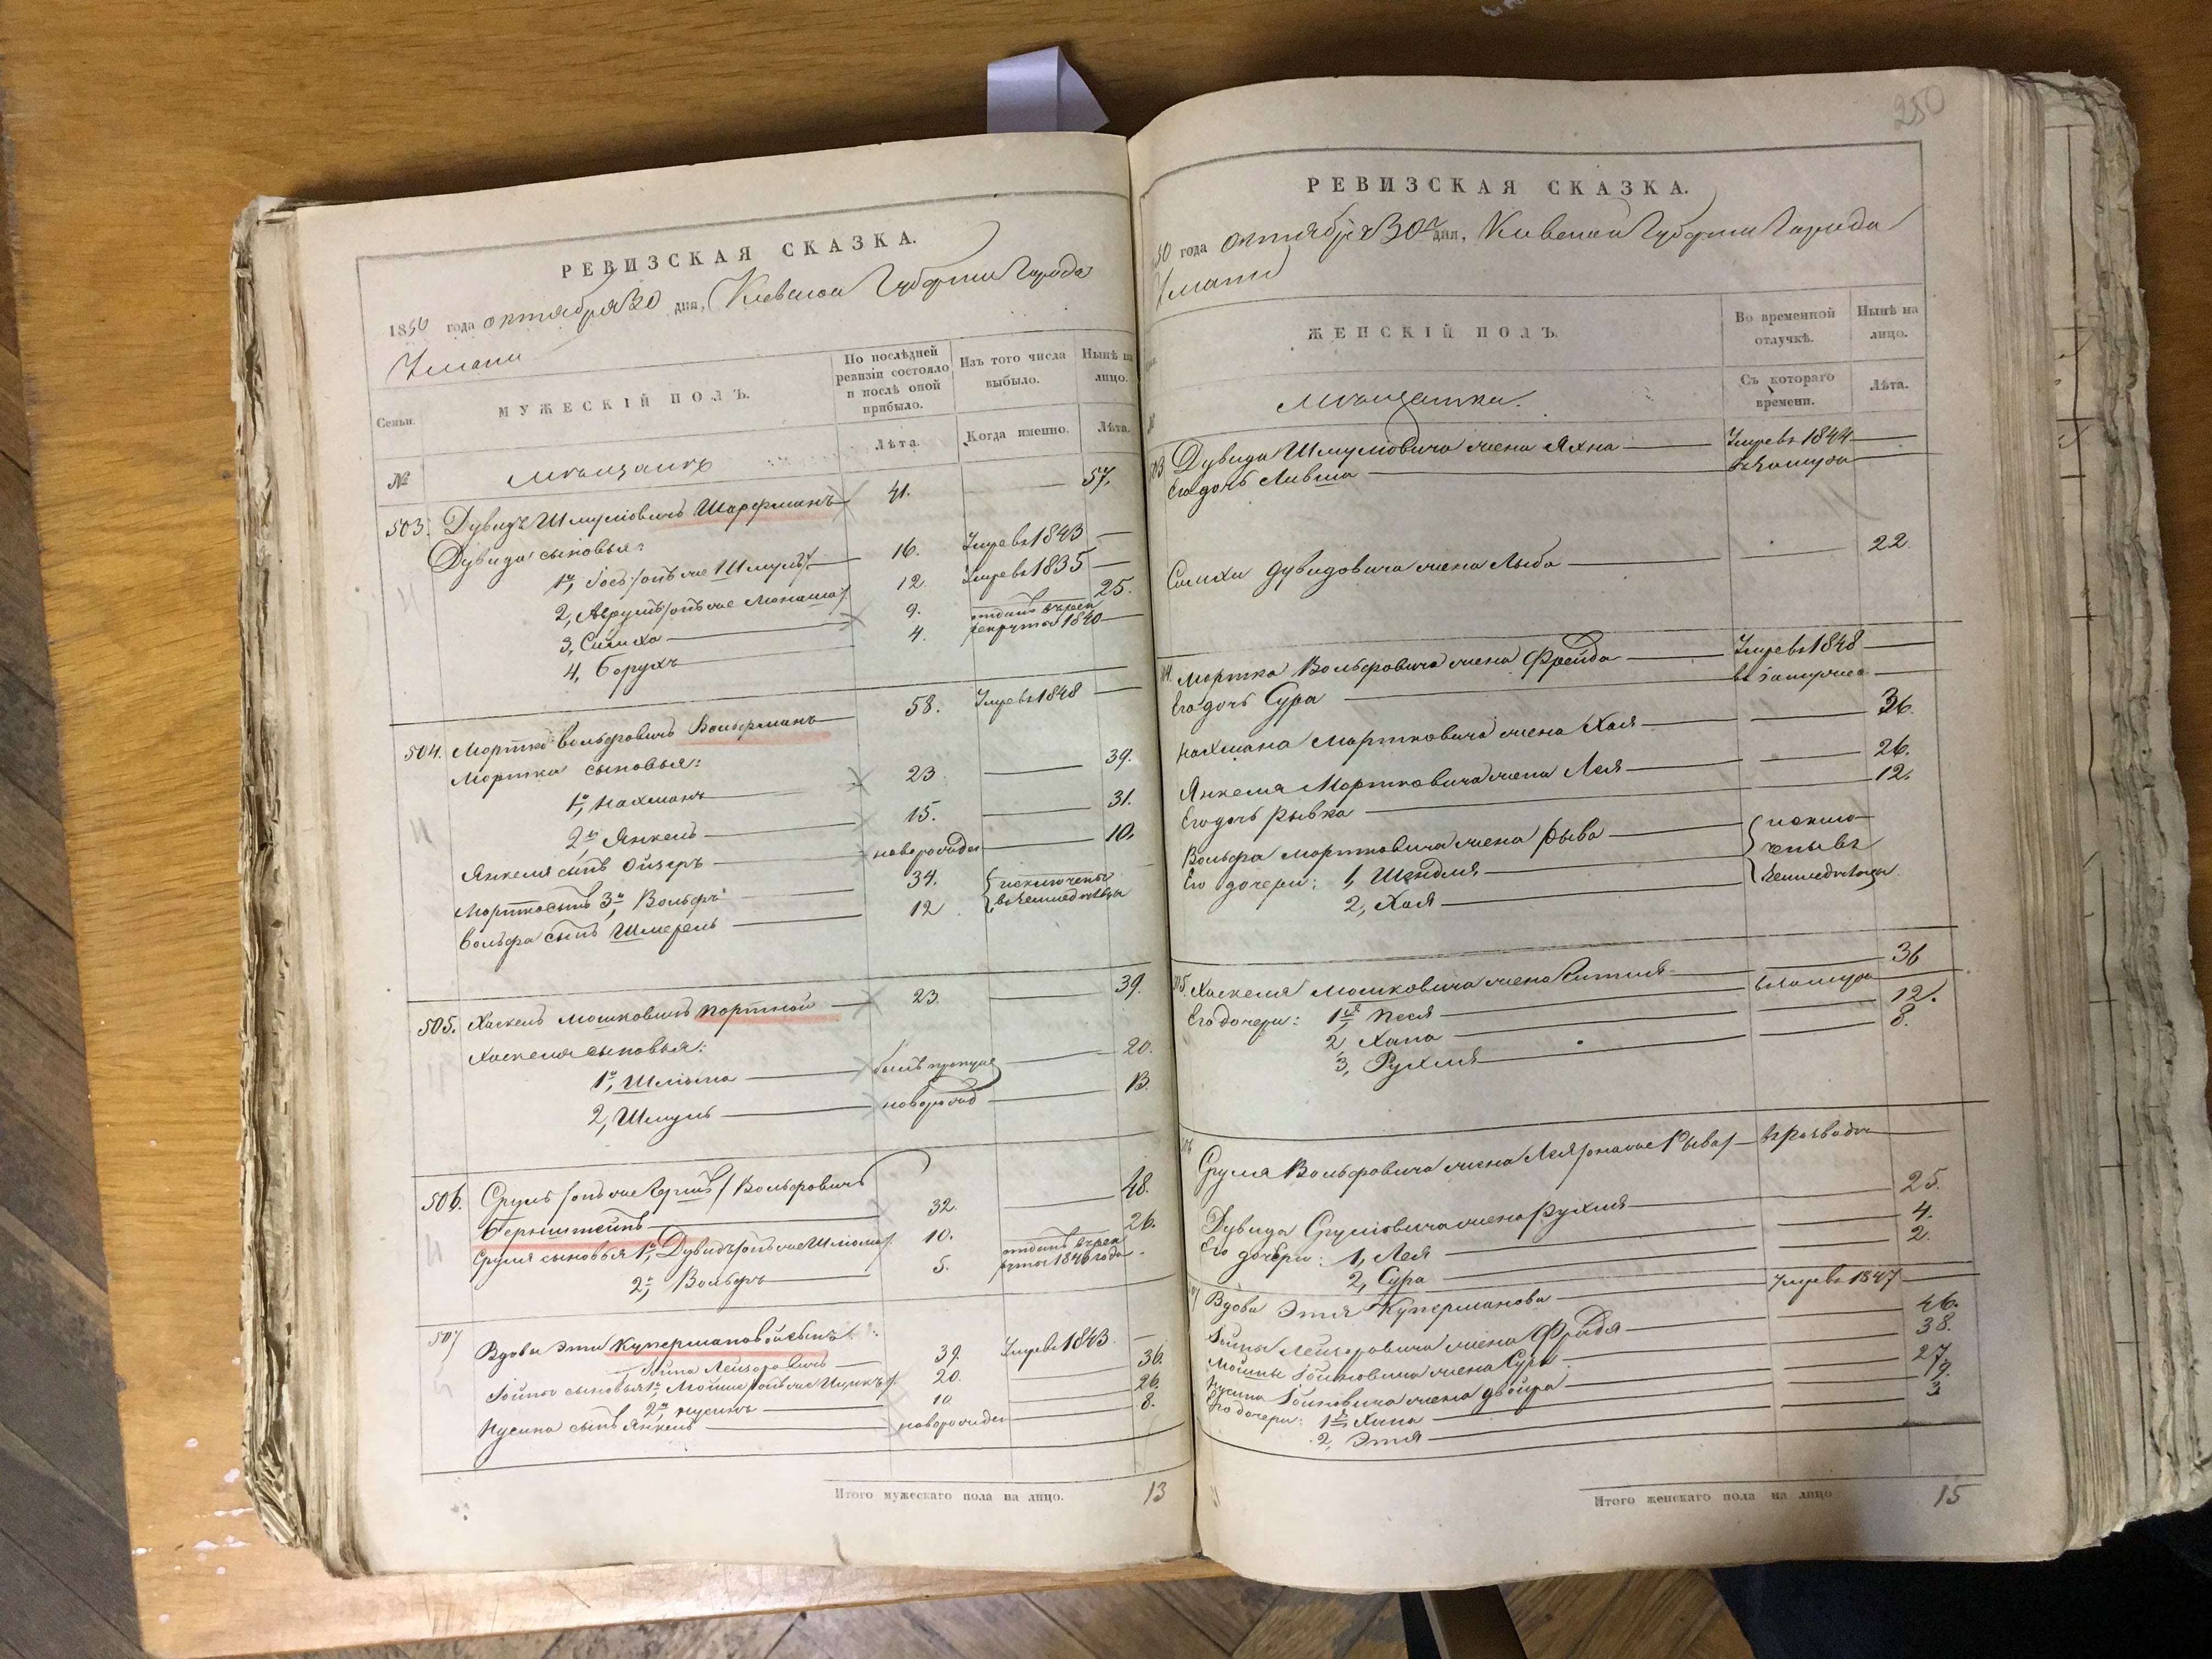 РЕВИЗСКАЯ СКАЗКА.
1850 года октября 30 дня, Киевской Губернии Города
Умани
Семьи.
МУЖЕСКІЙ ПОЛЪ.
По послѣдней ревизіи состояло и послѣ оной прибыло.
Изъ того числа выбыло.
Нынѣ на лицо.
Лѣта.
Когда именно.
Лѣта.
№
Мѣщанъ
503. Дувидъ Шмуліовичъ Шарфманъ 41. 57.
Дувида сыновья:
1й, Іосъ /онъ же Шмуль/ 16. Умре въ 1843
2, Аврумъ /онъ же Монаша/ 12. Умре въ 1835
3, Симха 9. 25.
4, Борухъ 4. отданъ въ рекруты 1840
504. Мортко Вольфовичъ Вольфманъ 58. Умре въ 1848
Мортка сыновья:
1й, Нахманъ 23. 39.
2й, Янкель 15. 31.
Янкеля сынъ Ойзеръ новорожден 10.
Мортка сынъ 3й, Вольфъ 34. исключены
Вольфа сынъ Шмерель 12 въ земледѣльцы
505. Хаскель Мошковичъ Портной 23. 39.
Хаскеля сыновья:
1й, Шліома 20.
2, Шмуль новорожд 13.
506. Сруль /онъ же Гершъ/ Вольфовичъ
Бернштейнъ 32. 48.
Сруля сыновья 1й, Дувидъ /онъ же Шліома/ 10. 26.
2й, Вольфъ 5. отданъ въ рекруты 1846 года
507 Вдовы Эти Купермановой сынъ
Лейзоровичъ 39. Умре въ 1843
сыновья 1й, Мойше /онъ же Ицикъ/ 20. 36.
2й, Нусинъ 10 26.
Нусина сынъ Янкель новорожден 8.
Итого мужескаго пола на лицо. 13
250
РЕВИЗСКАЯ СКАЗКА.
50 года октября 30го дня, Киевской Губернии Города
Умани
ЖЕНСКІЙ ПОЛЪ.
Во временной отлучкѣ.
Нынѣ на лицо.
Съ котораго времени.
Лѣта.
Мѣщанки.
Дувида Шмуліовича жена Яхна Умре въ 1844
Его дочь Ливша въ замуже
Симхи Дувидовича жена Лыба 22.
Мортка Вольфовича жена Фрейда Умре въ 1848
Его дочь Сура въ замужес
Нахмана Мортковича жена Хая 36.
Янкеля Мортковича жена Лея 26.
Его дочь Рывка 12.
Вольфа Мортковича жена Рыва исклю-
Его дочери: 1, Шейдля чены въ
2, Хая земледѣльцы
Хаскеля Мошковича жена Гитля 36
Его дочери: 1я, Песя въ замуже
2, Хана 12.
3, Рухля 8.
Сруля Вольфовича жена Лея /она же Рыва/ въ разводе
Дувида Сруліовича жена Рухля 25.
Его дочери: 1, Лея 4.
2, Сура 2.
Вдова Этя Куперманова Умре въ 1847
Лейзоровича жена Фрейда 46.
жена Сура 38.
Нусина жена Двойра 27
Его дочери: 1я, Хана 9.
2, Этя 3
Итого женскаго пола на лицо 15